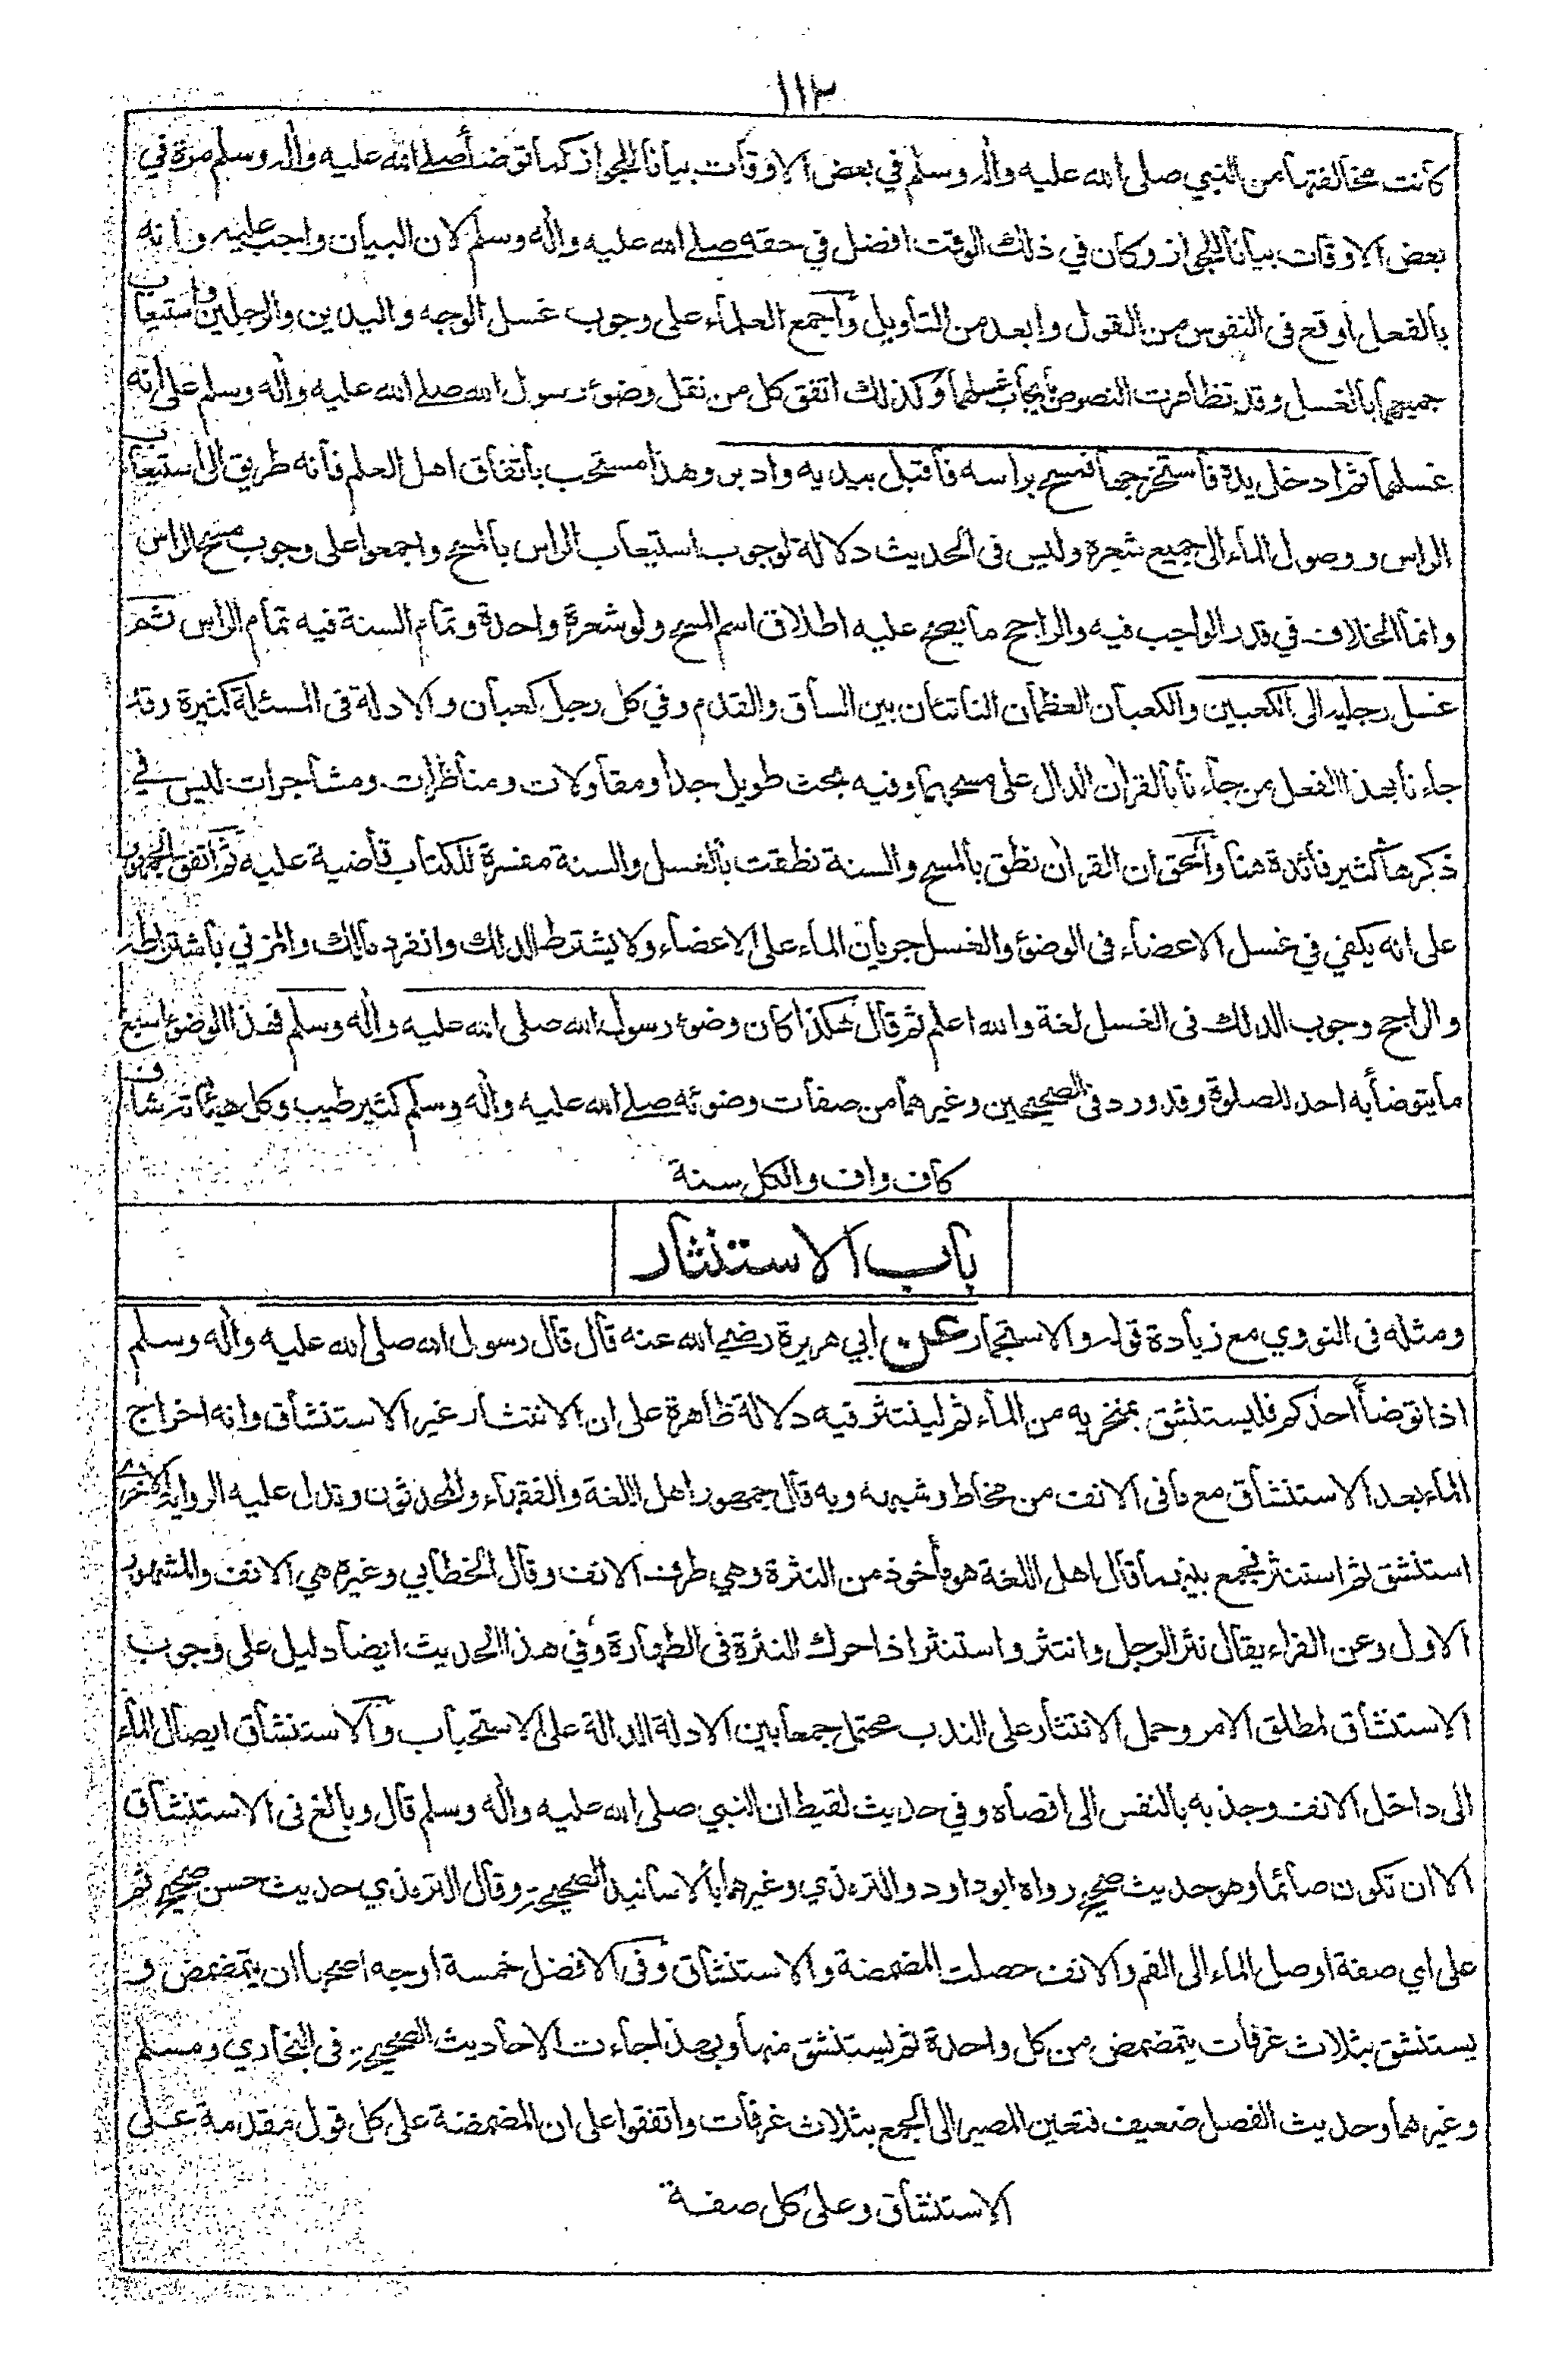 ١١٢
كانت مخالفتها من النبي صلى الله عليه واٰله وسلم في بعض الاوقات بيانا للجواز كما توضأ صلے الله عليه واٰله وسلم مرة في
بعض الاوقات بيانا للجواز وكان في ذلك الوقت افضل في حقه صلے الله عليه واٰله وسلم لان البيان واجب عليه وانه
بالفعل اوقع فى النفوس من القول وابعد من التاويل واجمع العلماء على وجوب غسل الوجه واليدين والرجلين واستيعاب
جميعها بالغسل وقد تظاهرت النصوص بايجاب غسلها وكذلك اتفق كل من نقل وضوء رسول الله صلے الله عليه واٰله وسلم على انه
غسلهما ثم ادخل يده فاستخرجها فمسح براسه فاقبل بيديه وادبر وهذا مستحب باتفاق اهل العلم فانه طريق الى استيعاب
الراس ووصول الماء الى جميع شعره وليس فى الحديث دلالة لوجوب استيعاب الراس بالمسح واجمعوا على وجوب مسح الراس
وانما الخلاف في قدر الواجب فيه والراجح ما يصح عليه اطلاق اسم المسح ولو شعرة واحدة وتمام السنة فيه تمام الراس ثم
غسل رجليه الى الكعبين والكعبان العظمان الناتئان بين الساق والقدم وفي كل رجل كعبان والادلة فى المسئلة كثيرة وقد
جاءنا بهذا الفعل من جاءنا بالقراٰن الدال على مسحهما وفيه بحث طويل جدا ومقاولات ومناظرات ومشاجرات ليس في
ذكرها كثير فائدة هنا والحق ان القراٰن نطق بالمسح والسنة نطقت بالغسل والسنة مفسرة للكتاب قاضية عليه ثم اتفق الجمهور
على انه يكفي في غسل الاعضاء فى الوضوء والغسل جريان الماء على الاعضاء ولا يشترط الدلك وانفرد مالك والمزني باشتراطه
والراجح وجوب الدلك فى الغسل لغة والله اعلم ثم قال هكذا كان وضوء رسول الله صلى الله عليه واٰله وسلم فهذا الوضوء اسبغ
ما يتوضأ به احد للصلوة وقد ورد فى الصحيحين وغيرهما من صفات وضوئه صلے الله عليه واٰله وسلم كثير طيب وكل هيئاته شاف
كاف واف والكل سنة
باب الاستنثار
ومثله فى النووي مع زيادة قوله والاستجمار عن ابي هريرة رضي الله عنه قال قال رسول الله صلى الله عليه واٰله وسلم
اذا توضأ احدكم فليستنشق بمنخريه من الماء ثم لينتثر فيه دلالة ظاهرة على ان الانتثار غير الاستنشاق وانه اخراج
الماء بعد الاستنشاق مع ما فى الانف من مخاط وشبهه وبه قال جمهور اهل اللغة والفقهاء والمحدثون ويدل عليه الرواية الاخرى
استنشق ثم استنثر فجمع بينهما قال اهل اللغة هو مأخوذ من النثرة وهي طرف الانف وقال الخطابي وغيره هي الانف والمشهور
الاول وعن الفراء يقال نثر الرجل وانتثر واستنثر اذا حرك النثرة فى الطهارة وفي هذا الحديث ايضا دليل على وجوب
الاستنشاق لمطلق الامر وحمل الانتثار على الندب محتمل جمعا بين الادلة الدالة على الاستحباب والاستنشاق ايصال الماء
الى داخل الانف وجذبه بالنفس الى اقصاه وفي حديث لقيط ان النبي صلى الله عليه واٰله وسلم قال وبالغ فى الاستنشاق
الا ان تكون صائما وهو حديث صحيح رواه ابو داود والترمذي وغيرهما بالاسانيد الصحيحة وقال الترمذي حديث حسن صحيح ثم
على اي صفة اوصل الماء الى الفم والانف حصلت المضمضة والاستنشاق وفى الافضل خمسة اوجه اصحها ان يتمضمض و
يستنشق بثلاث غرفات يتمضمض من كل واحدة ثم يستنشق منها وبهذا جاءت الاحاديث الصحيحة فى البخاري ومسلم
وغيرهما وحديث الفصل ضعيف فتعين المصير الى الجمع بثلاث غرفات واتفقوا على ان المضمضة على كل قول مقدمة على
الاستنشاق وعلى كل صفة